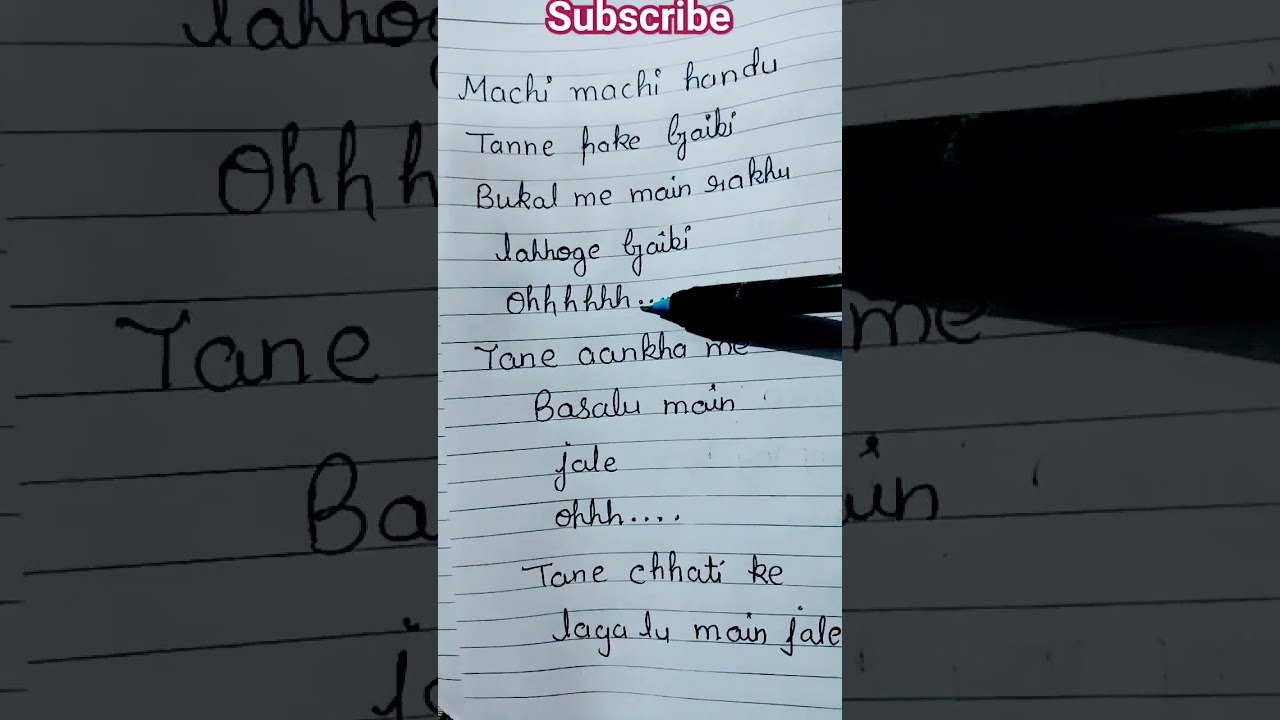 Subscribe
Machi machi handu
Tanne pake Gaibi
Bukal me main rakhu
lahhoge Gaibi
Ohhhhhh..
Tane aankha me
Basalu main
jale
ohhh....
Tane chhati ke
laga lu main jale